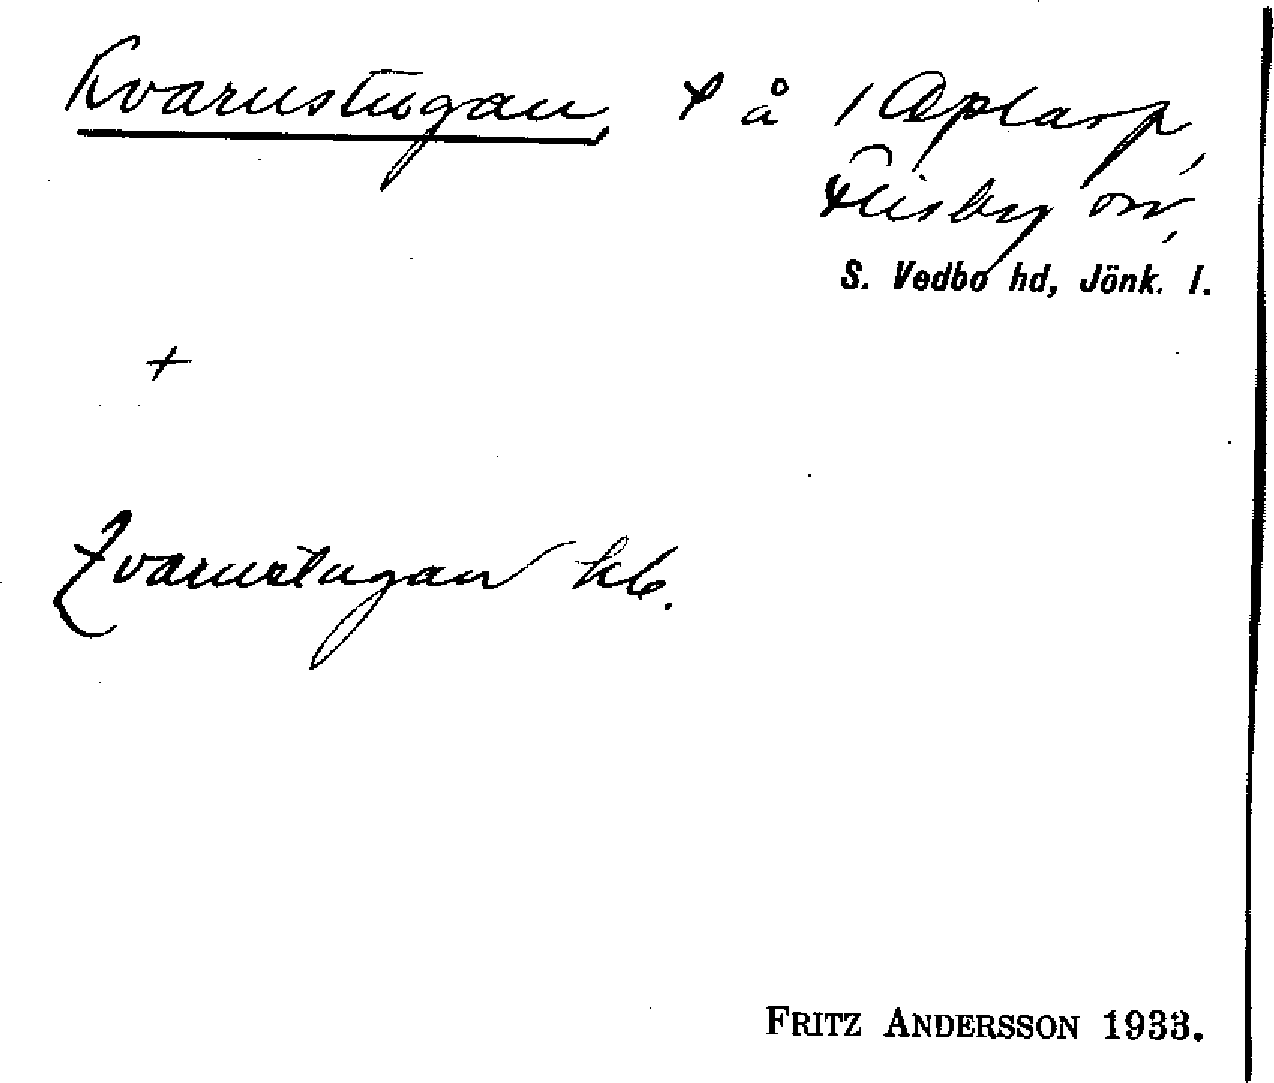 Kvarnstugan, t å 1 Aplarp,
Flisby sn,
S. Vedbo hd, Jönk. l.
+
Qvarnstugan hb.
FRITZ ANDERSSON 1933.